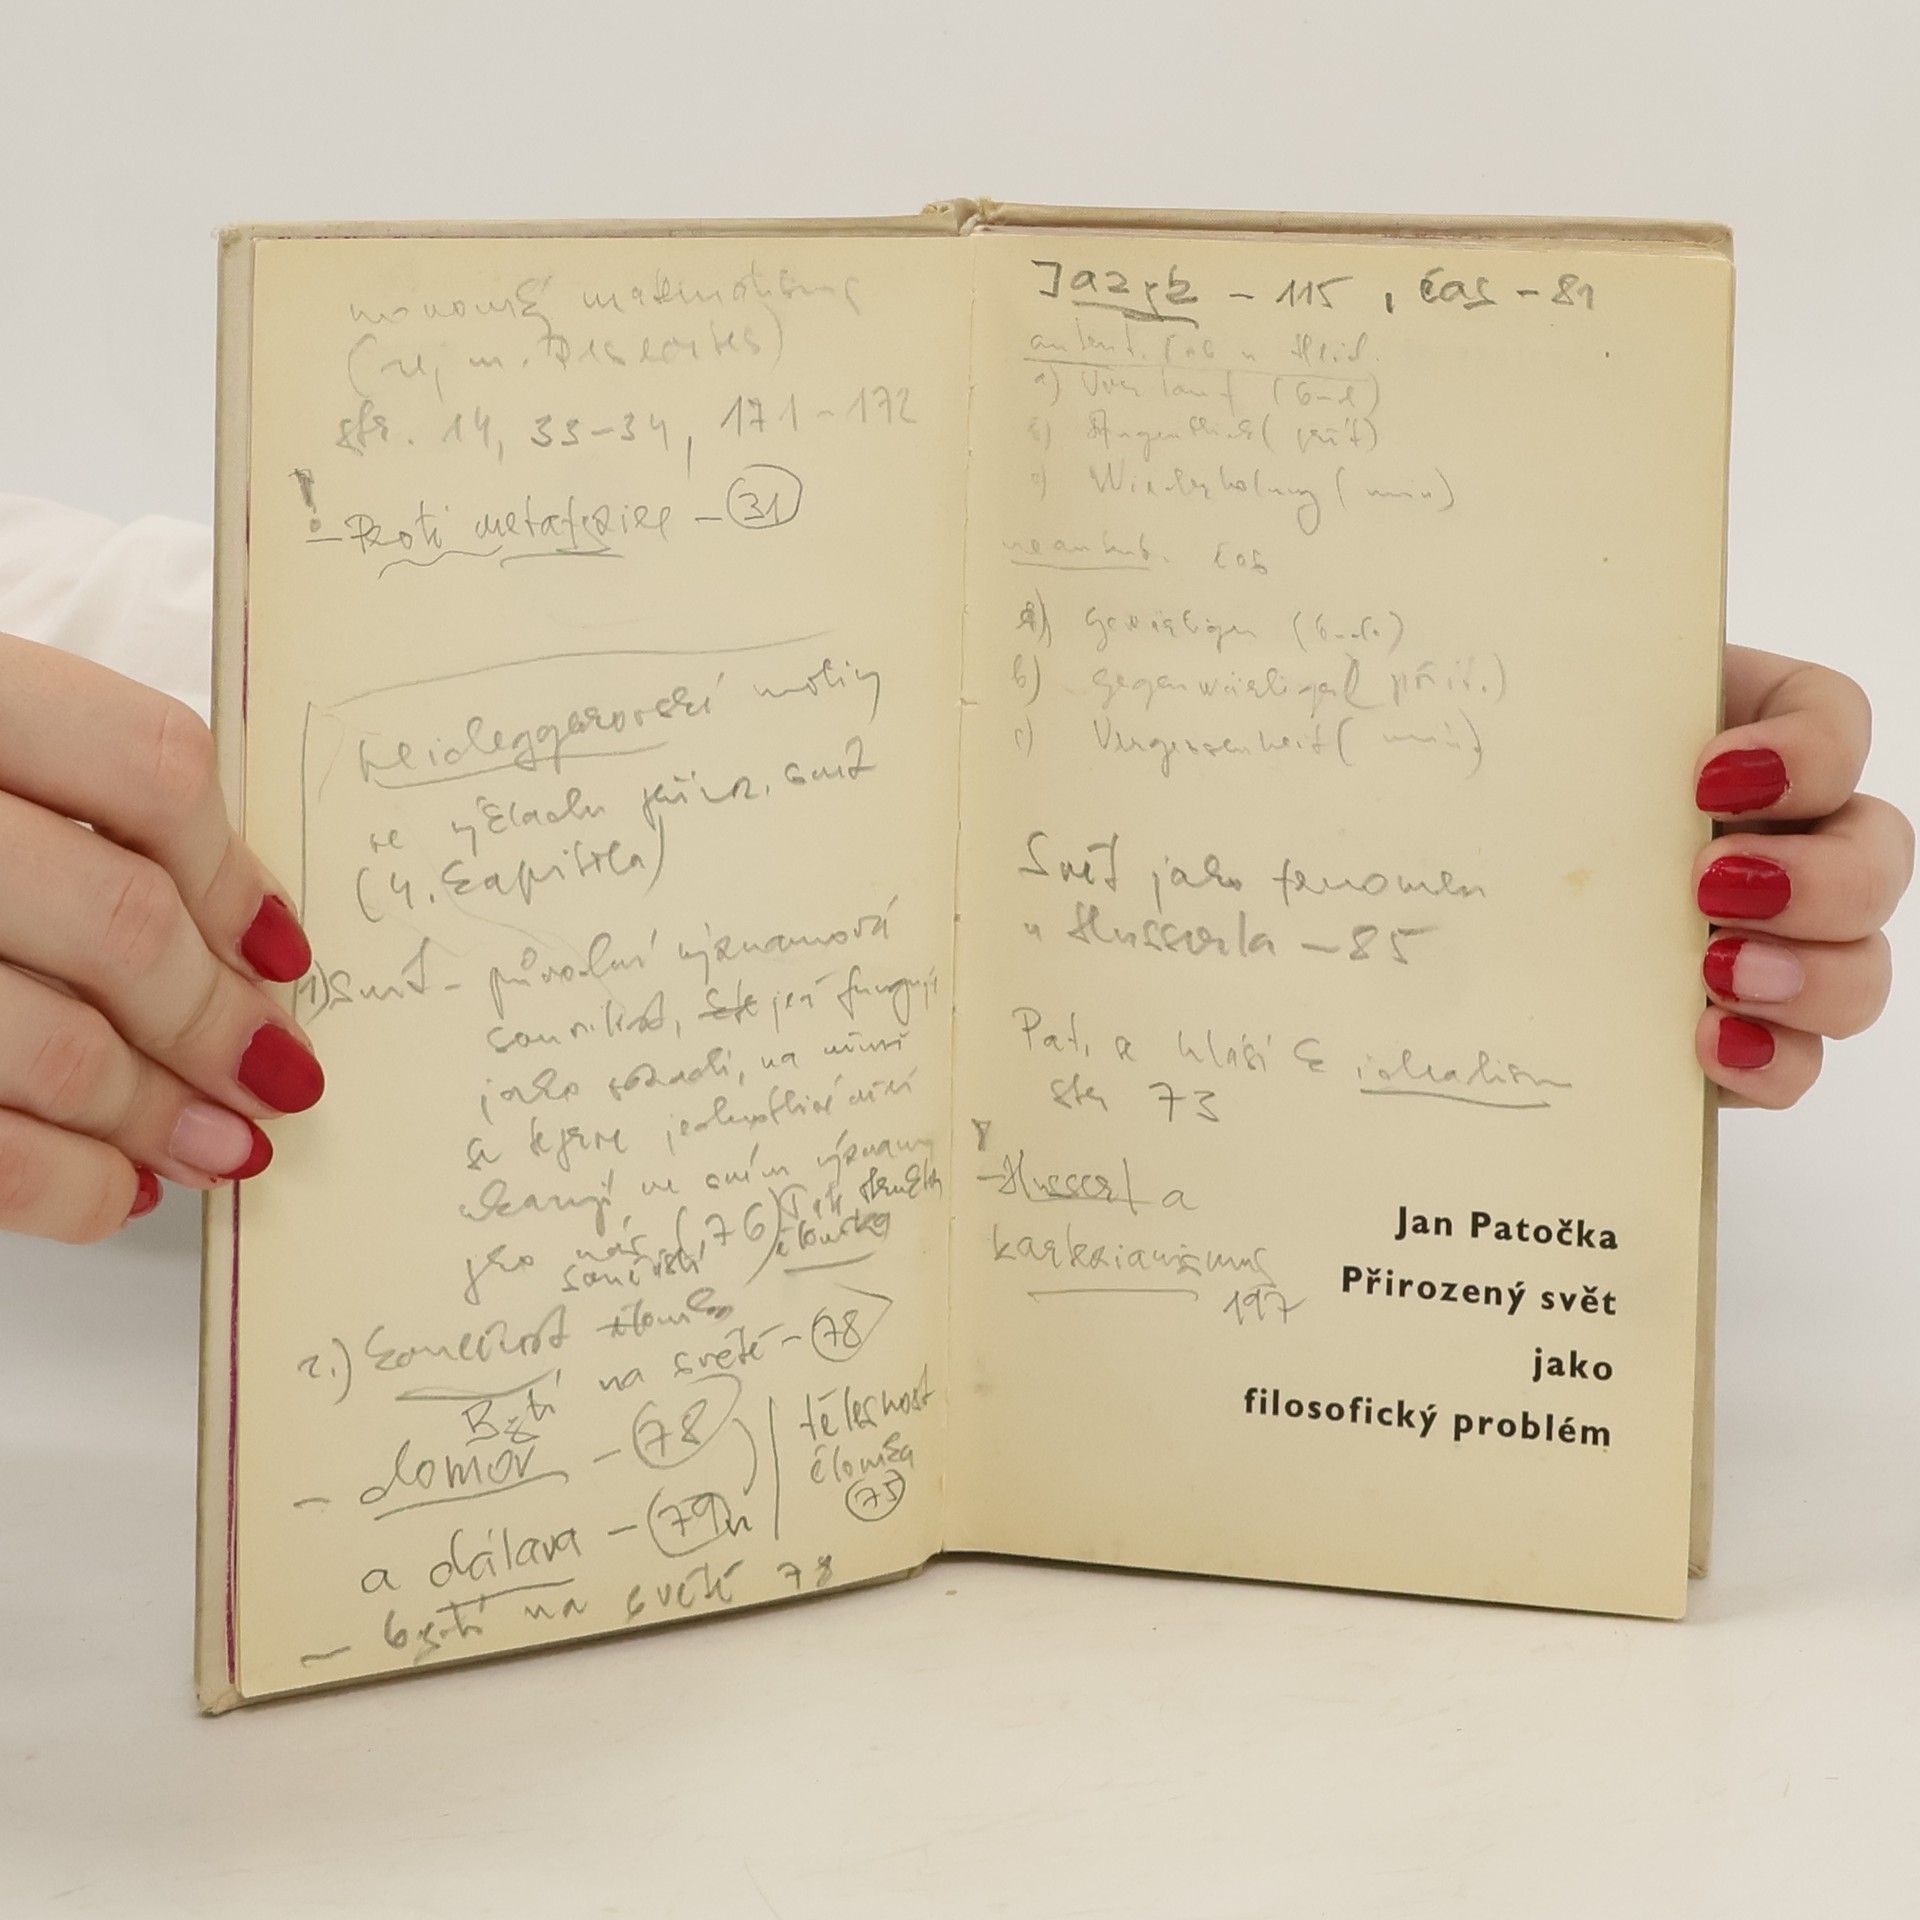 matematismus
(
str. 14, 33-34, 171-172
! – Proti metafyzice – 31
Heideggerovské motivy
ve výkladu přiroz. svět
(4. kapitola)
1) Svět – původní významová
souvislost, jež funguje
jako pozadí, na němž
se teprve jednotlivé věci
ukazují ve svém významu
jako naše (76)
součásti
člověka
2.) Konečnost
Bytí na světě – 78
– domov – 78
a dálava – 79n
tělesnost
člověka
75
– bytí na světě 78
Jazyk – 115, čas – 81
autent. čas u Heid.
a) Vorlauf (bud)
b) Augenblick (přít)
c) Wiederholung (min)
neautent. čas
a) Gewärtigen (bud.)
b) Gegenwärtigen (přít.)
c) Vergessenheit (min.)
Svět jako fenomen
u Husserla – 85
Pat. se hlásí k idealism
str 73
! – Husserl a
kartezianismus
197
Jan Patočka
Přirozený svět
jako
filosofický problém